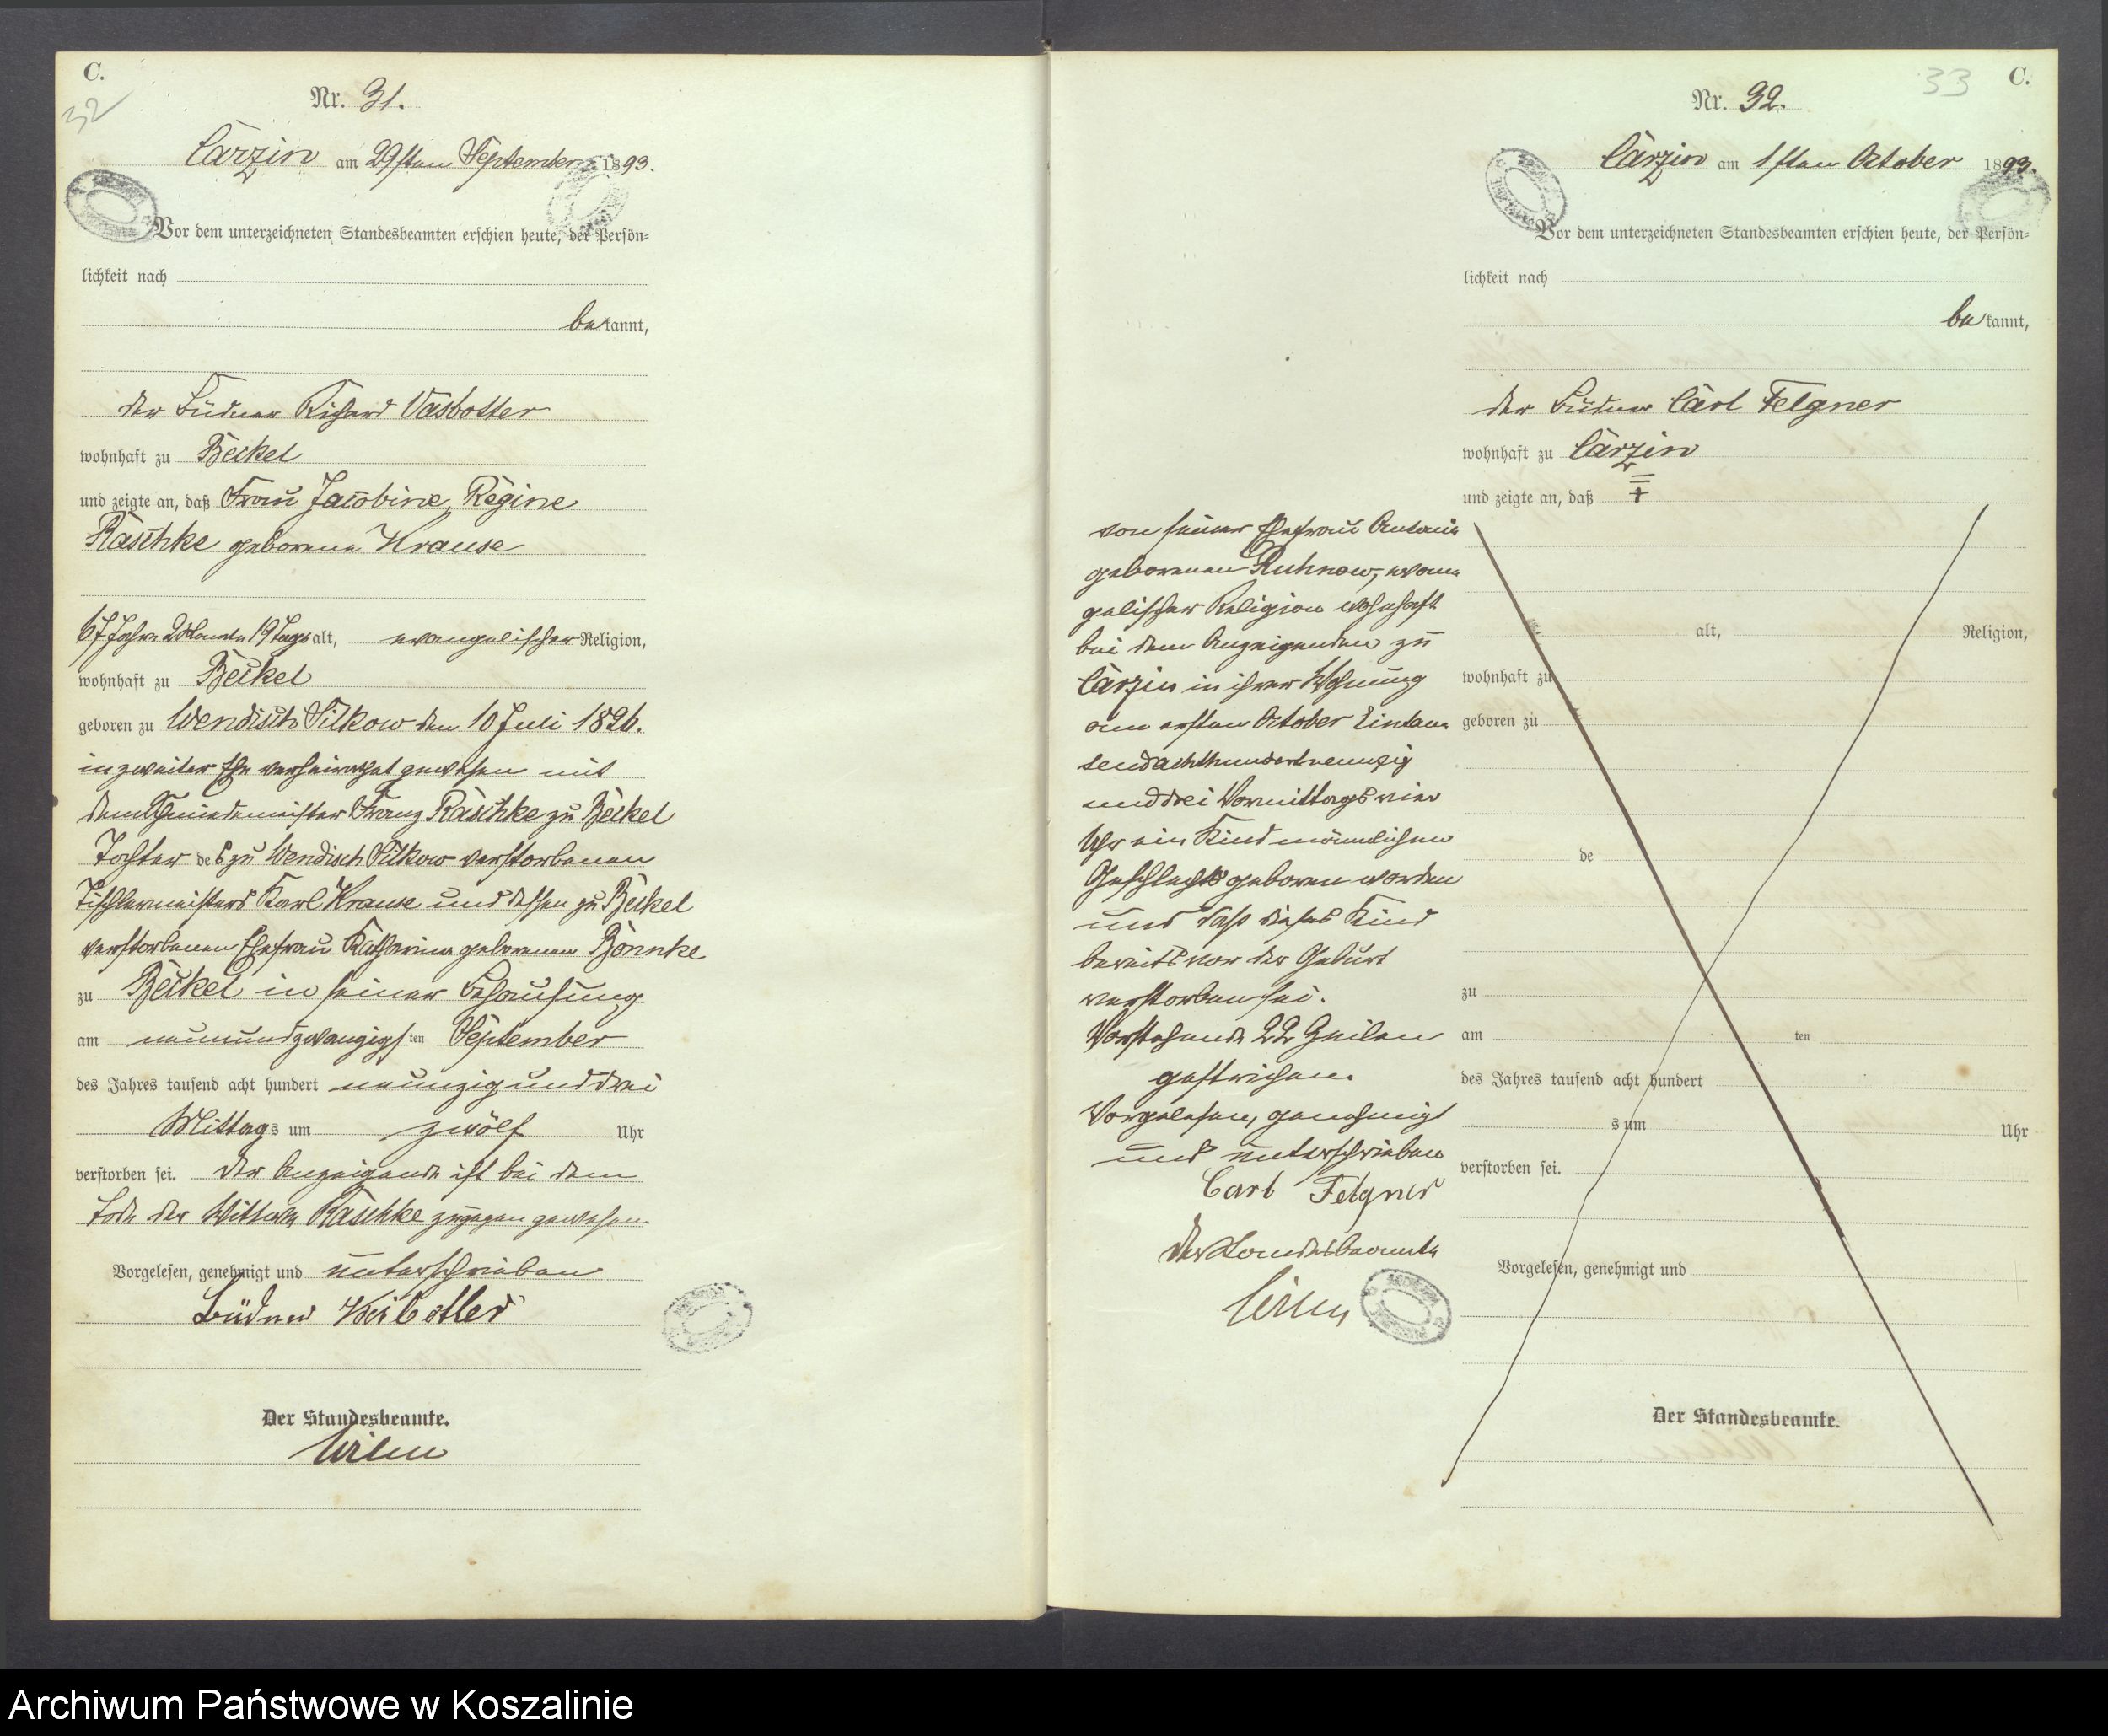 C.
32
Nr. 31.
Carzin am 29sten September 1893.
Vor dem unterzeichneten Standesbeamten erschien heute, der Persön-
lichkeit nach
bekannt,
der Büdner Richard Vasbotter
wohnhaft zu Beckel
und zeigte an, daß Frau Jacobine, Regine
Raschke geborene Krause
67 Jahre 2 Monate 19 Tage alt, evangelischer Religion,
wohnhaft zu Beckel
geboren zu Wendisch Silkow den 10 Juli 1826.
in zweiter Ehe verheirathet gewesen mit
dem Schmiedemeister Franz Raschke zu Beckel
Tochter des zu Wendisch Silkow verstorbenen
Tischlermeisters Karl Krause und dessen zu Beckel
verstorbenen Ehefrau Katharina geborenen Bönnke
zu Beckel in seiner Behausung
am neunundzwanzigsten September
des Jahres tausend acht hundert neunzig und drei
Mittags um zwölf Uhr
verstorben sei. Der Anzeigende ist bei dem
Tode der Wittwe Raschke zugegen gewesen
Vorgelesen, genehmigt und unterschrieben
Büdner
Der Standesbeamte.
C.
33
Nr. 32.
Carzin am 1sten October 1893.
Vor dem unterzeichneten Standesbeamten erschien heute, der Persön-
lichkeit nach
bekannt,
der Büdner Carl Felgner
wohnhaft zu Carzin
und zeigte an, daß
von seiner Ehefrau Antonie
geborenen Ruhnow, evan-
gelischer Religion wohnhaft
bei dem Anzeigenden zu
Carzin in ihrer Wohnung
am ersten October Eintau-
sendachthundertneunzig
und drei Vormittags vier
Uhr ein Kind männlichen
Geschlechts geboren worden
und daß dieses Kind
bereits vor der Geburt
verstorben sei.
Vorstehende 22 Zeilen
gestrichen.
Vorgelesen, genehmigt
und unterschrieben
Carl Felgner
Der Standesbeamte
alt, Religion,
wohnhaft zu
geboren zu
de
zu
am ten
des Jahres tausend acht hundert
s um Uhr
verstorben sei.
Vorgelesen, genehmigt und
Der Standesbeamte.
Archiwum Państwowe w Koszalinie